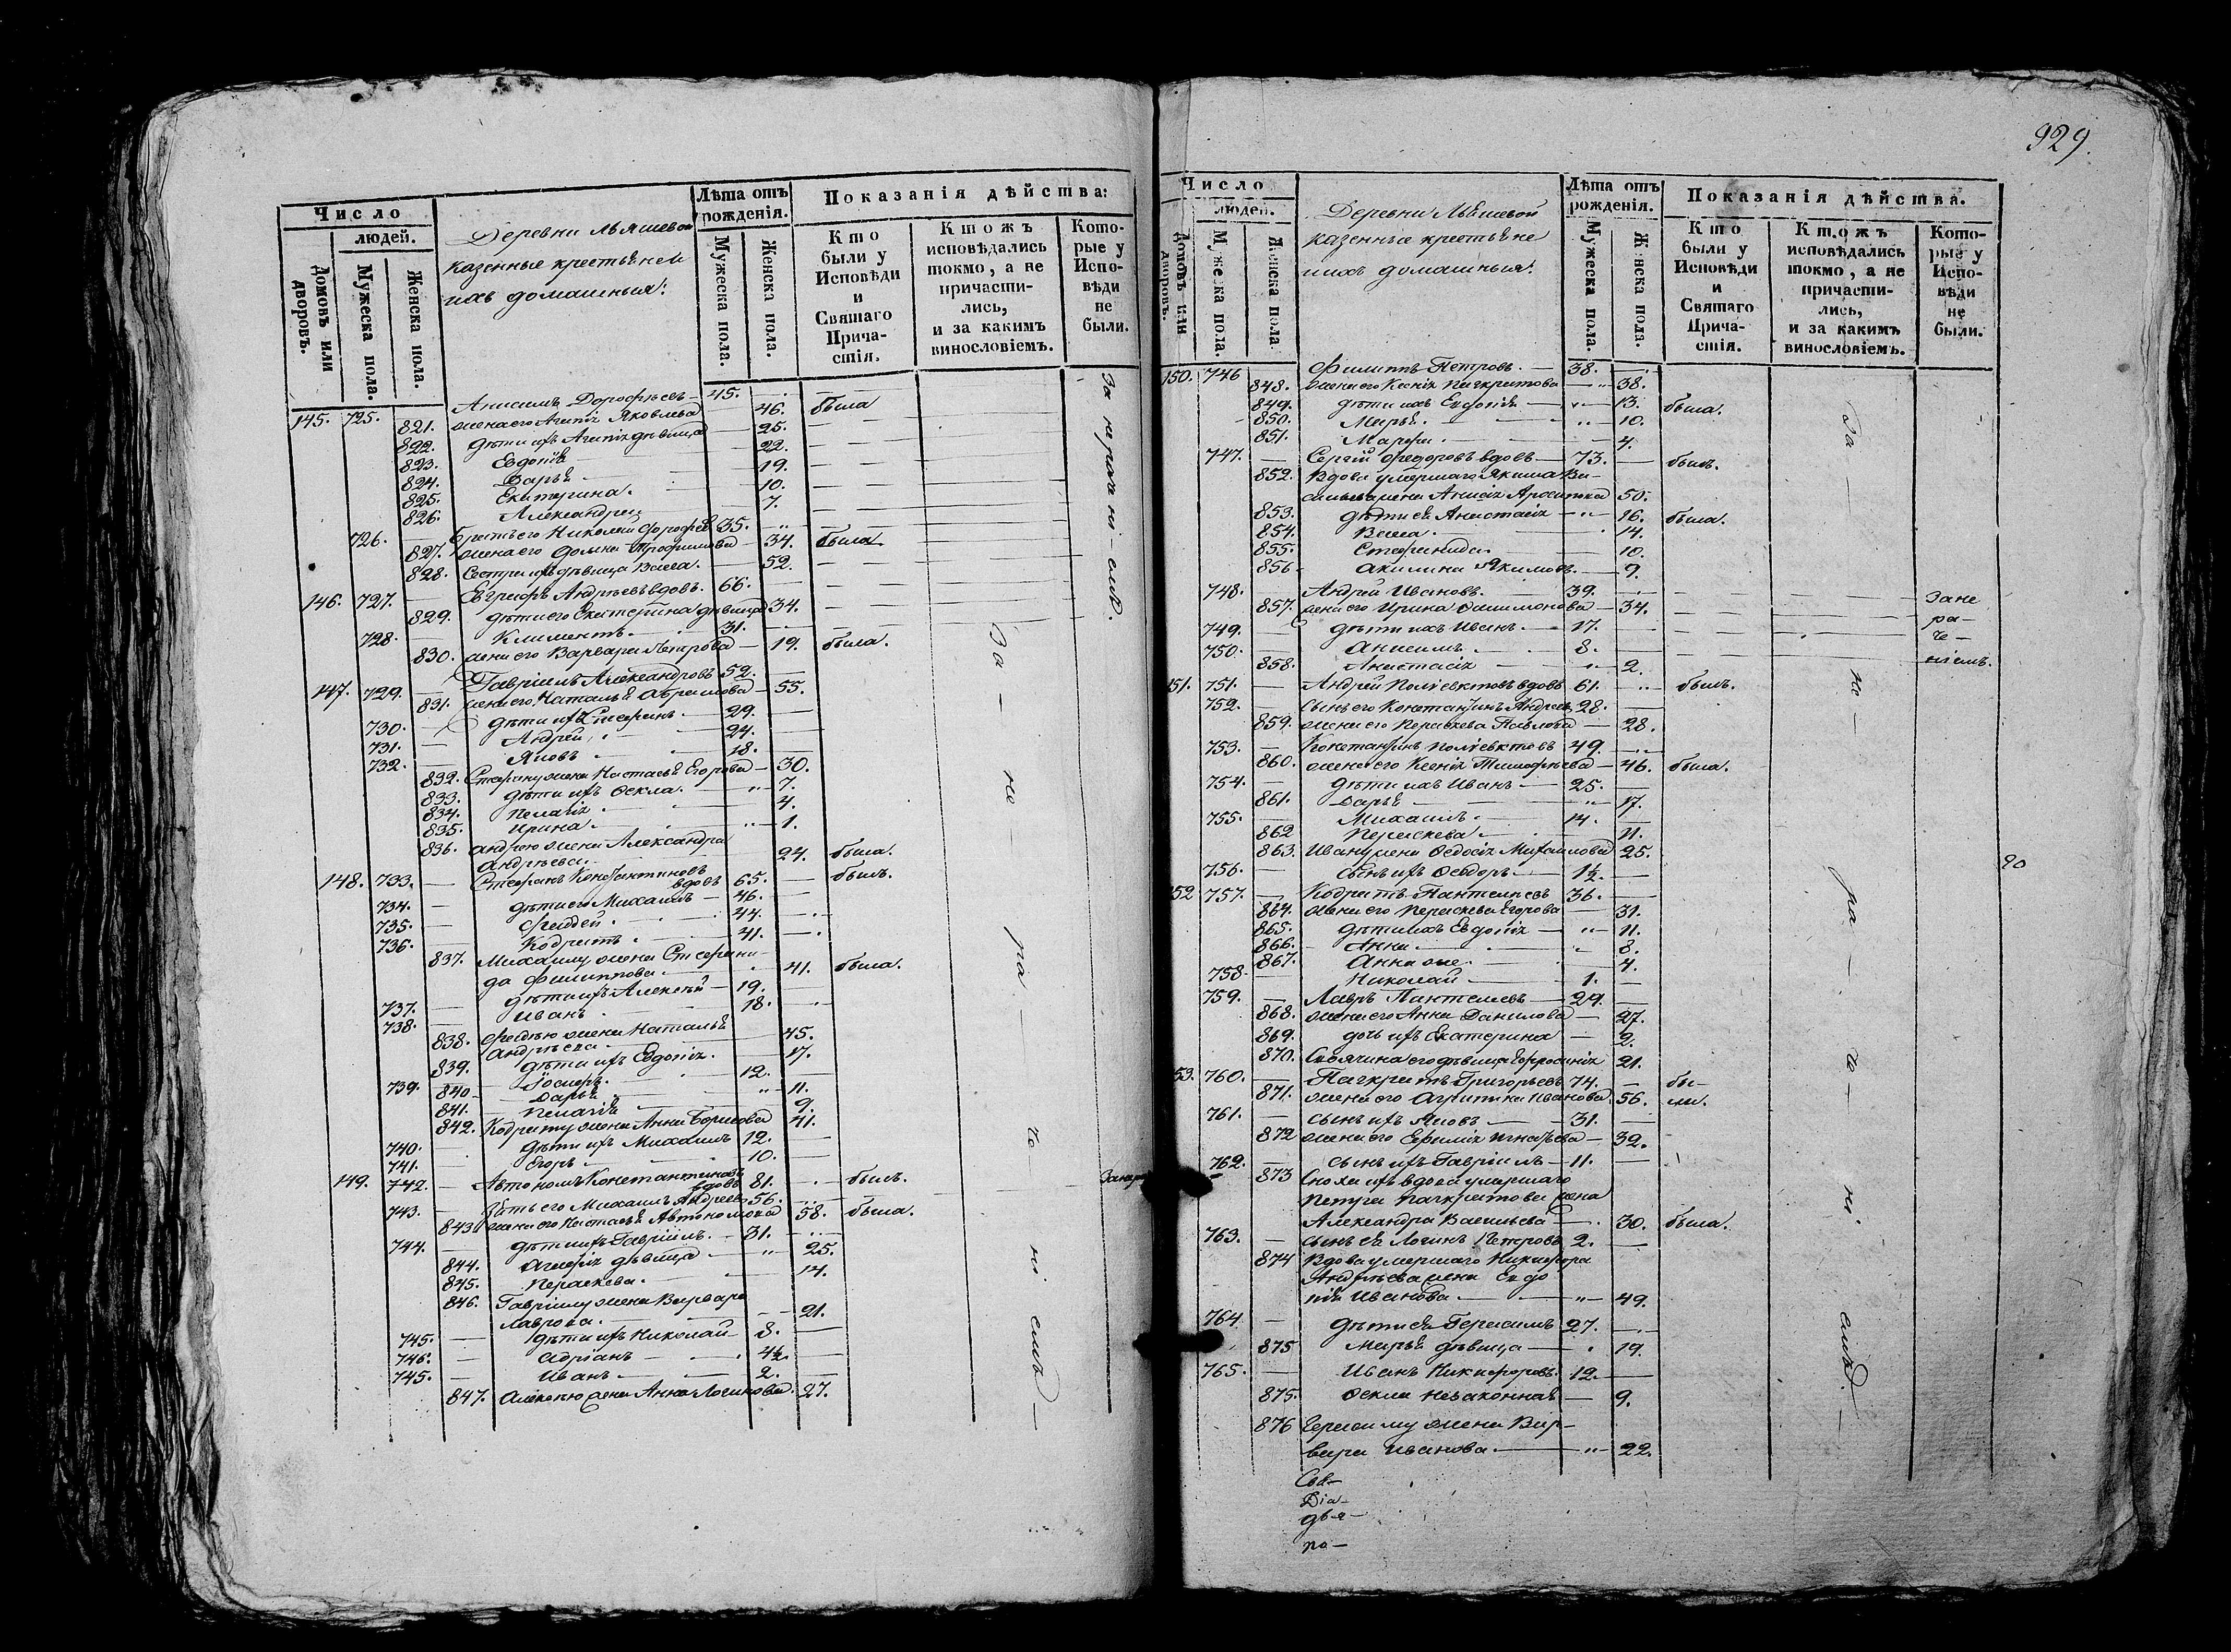 Число
людей.
Домовъ или дворовъ.
Мужеска пола.
Женска пола.
Деревни Льяшевой
казенные крестьяне и
ихъ домашныя:
Лѣта отъ рожденія.
Мужеска пола.
Женска пола.
Показанія дѣйства:
Кто были у Исповѣди и Святаго Причастія.
Ктожъ исповѣдались токмо, а не причастились, и за какимъ винословіемъ.
Которые у Исповѣди не были.
145. 725. Анисимъ Дорофѣевъ 45.
821. жена его Агапія Яковлева 46. была
822. дѣти ихъ Агапія дѣвица 25.
823. Евдокія 22.
824. Дарья 19.
825. Екатерина. 10.
826. Александра 7.
726. братъ его Николай Дорофѣевъ 35.
827. жена его Домна Трофимова 34. была
828. Сестра ихъ дѣвица Васса. 52.
146. 727. Евграфъ Андрѣевъ вдовъ. 66.
829. дѣти его Екатерина дѣвица 34.
728. Климентъ. 31.
830. жена его Варвара Петрова 19. была.
147. 729. Гавріилъ Александровъ 52.
831. жена его Наталья Абрамова 55.
730. дѣти ихъ Стефанъ 29.
731. Андрей 24.
732. Яковъ 18.
832. Стефану жена Настасья Егорова 30.
833. дѣти ихъ Ѳекла. 7.
834. Пелагія 4.
835. Ирина. 1.
836. Андрею жена Александра
Андрѣева. 24. была.
148. 733. Стефанъ Константиновъ
вдовъ 65. былъ.
734. дѣти его Михаилъ 46.
735. Фаддей 44.
736. Кодратъ 41.
837. Михаилу жена Стефани-
да Филиппова 41. была.
737. дѣти ихъ Алексѣй 19.
738. Иванъ 18.
838. Фадѣю жена Наталья
Андрѣева 45.
839. дѣти ихъ Евдокія. 17.
739. Іосифъ. 12.
840 Дарья 11.
841. Пелагія 9.
842. Кодрату жена Анна Борисова 41.
740. дѣти ихъ Михаилъ 12.
741. Егоръ 10.
149. 742. Автономъ Константиновъ
вдовъ 81. былъ.
743. Зять его Михаилъ Андреевъ 56.
843. жена его Настасья Автономова 58. была.
744. дѣти ихъ Гавріилъ. 31.
844. Агафія дѣвица 25.
845. Параскева. 14.
846. Гавріилу жена Варвара
Лаврова. 21.
745. дѣти ихъ Николай 8.
746. Адріанъ 4½
745. Иванъ 2.
847. Алексѣю жена Анна Логинова. 27.
За нераченіемъ.
За — не — ра — че — ні емъ —
929.
Число
людей.
Домовъ или дворовъ.
Мужеска пола.
Женска пола.
Деревни Льяшевой
казенные крестьяне
и ихъ домашныя:
Лѣта отъ рожденія.
Мужеска пола.
Женска пола.
Показанія дѣйства.
Кто были у Исповѣди и Святаго Причастія.
Ктожъ исповѣдались токмо, а не причастились, и за какимъ винословіемъ.
Которые у Исповѣди не были.
150. 746 Филиппъ Петровъ. 38.
848. жена его Ксенія Панкратова 38.
849. дѣти ихъ Евдокія 13. была.
850. Марья. 10.
851. Марфа. 4.
747. Сергій Ѳедоровъ вдовъ 73. былъ.
852. Вдова умершаго Якима Ва-
сильева жена Анисія Архипова 50.
853. дѣти ея Анастасія 16. была.
854. Васса 14.
855. Стефанида 10.
856 Акилина Якимова. 9.
748. Андрей Ивановъ. 39.
857. жена его Ирина Филимонова 34.
749. дѣти ихъ Иванъ 17.
750. Анисимъ 8.
858. Анастасія 2.
За не
ра-
че-
ніемъ.
151. 751. Андрей Поліевктовъ вдовъ 61. былъ.
752. Сынъ его Константинъ Андреевъ 28.
859. жена его Параскева Павлова 28.
753. Константинъ Поліевктовъ 49.
860. жена его Ксенія Тимофѣева 46. была.
754. дѣти ихъ Иванъ 25.
861. Дарья 17.
755. Михаилъ 14.
862 Параскева 11.
863. Ивану жена Ѳедосія Михаилова 25.
756. Сынъ ихъ Ѳедоръ 1½.
152 757. Кодратъ Пантелѣевъ 36.
864. жена его Параскева Егорова 31.
865. дѣти ихъ Евдокія 11.
866. Анна 8.
867. Анна же 4.
758. Николай 1.
759. Лавръ Пантелѣевъ 29.
868. жена его Анна Данилова 27.
869. дочь ихъ Екатерина 2.
870. Своячина его дѣвица Ефросинія 21.
153. 760. Панкратъ Григорьевъ 74. бы-
871. жена его Агрипина Иванова. 56. ли.
761. сынъ ихъ Яковъ 31.
872 жена его Ефимія Игнатьева 32.
762. сынъ ихъ Гавріилъ 11.
873 Сноха ихъ вдова умершаго
Петра Панкратова жена
Александра Васильева 30. была.
763. сынъ ея Логинъ Петровъ 2.
874 Вдова умершаго Никифора
Андрѣева жена Евдо
кія Иванова 49.
764. дѣти ея Герасимъ 27.
875 Марья дѣвица 19.
765. Иванъ Никифоровъ. 12.
875. Ѳекла незаконная 9.
876 Герасиму жена Вар-
вара Иванова 22.
За — не — ра — че — ні емъ. —
90
Свя-
Діа-
дья-
по-